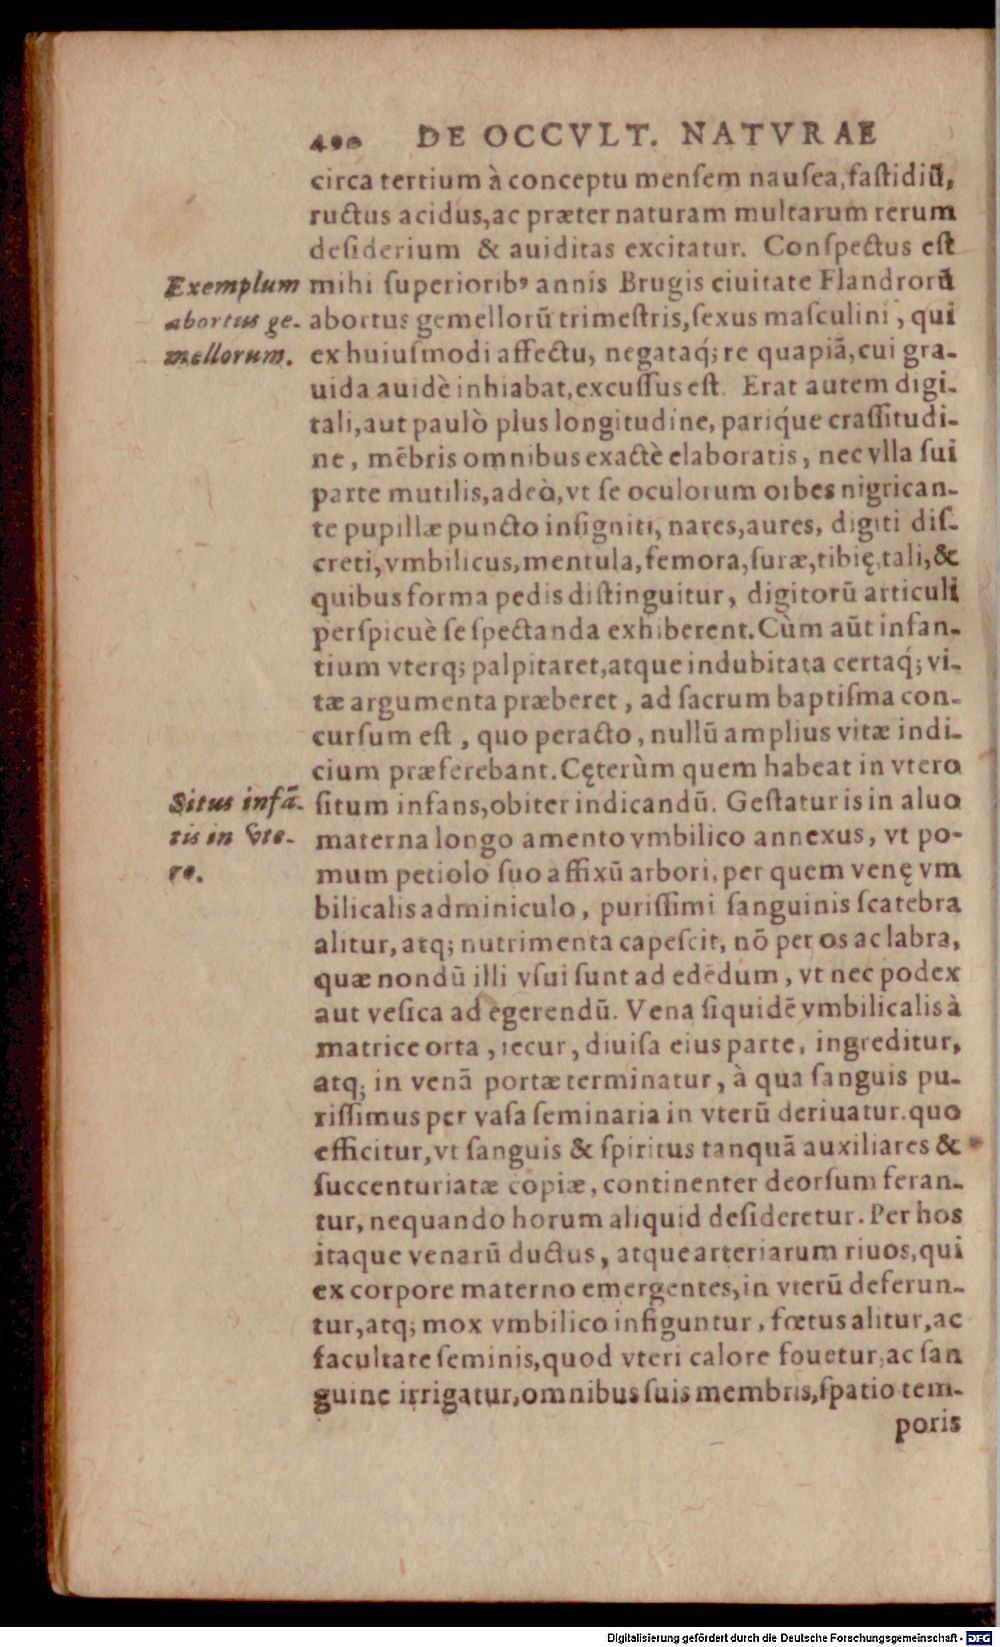 400 DE OCCVLT. NATVRAE
circa tertium à conceptu menſem nauſea, faſtidiũ,
ructus acidus, ac præter naturam multarum rerum
deſiderium & auiditas excitatur. Conſpectus eſt
Exemplum
abortus ge-
mellorum.
mihi ſuperioribꝰ annis Brugis ciuitate Flandrorũ
abortus gemellorũ trimeſtris, ſexus maſculini, qui
ex huiuſmodi affectu, negataq́; re quapiã, cui gra-
uida auidè inhiabat, excuſſus eſt. Erat autem digi-
tali, aut paulò plus longitudine, pariq́ue craſſitudi-
ne, mẽbris omnibus exactè elaboratis, nec vlla ſui
parte mutilis, adeò, vt ſe oculorum orbes nigrican-
te pupillæ puncto inſigniti, nares, aures, digiti diſ-
creti, vmbilicus, mentula, femora, ſuræ, tibię, tali, &
quibus forma pedis diſtinguitur, digitorũ articuli
perſpicuè ſe ſpectanda exhiberent. Cùm aũt infan-
tium vterq; palpitaret, atque indubitata certaq́; vi-
tæ argumenta præberet, ad ſacrum baptiſma con-
curſum eſt, quo peracto, nullũ amplius vitæ indi-
cium præferebant. Cęterùm quem habeat in vtero
Situs infã-
tis in vte-
ro.
ſitum infans, obiter indicandũ. Geſtatur is in aluo
materna longo amento vmbilico annexus, vt po-
mum petiolo ſuo affixũ arbori, per quem venę vm
bilicalis adminiculo, puriſſimi ſanguinis ſcatebra
alitur, atq; nutrimenta capeſcit, nõ per os ac labra,
quæ nondũ illi vſui ſunt ad edẽdum, vt nec podex
aut veſica ad egerendũ. Vena ſiquidẽ vmbilicalis à
matrice orta, iecur, diuiſa eius parte, ingreditur,
atq; in venã portæ terminatur, à qua ſanguis pu-
riſſimus per vaſa ſeminaria in vterũ deriuatur. quo
efficitur, vt ſanguis & ſpiritus tanquã auxiliares &
ſuccenturiatæ copiæ, continenter deorſum feran-
tur, nequando horum aliquid deſideretur. Per hos
itaque venarũ ductus, atque arteriarum riuos, qui
ex corpore materno emergentes, in vterũ deferun-
tur, atq; mox vmbilico infiguntur, fœtus alitur, ac
facultate ſeminis, quod vteri calore fouetur, ac ſan
guine irrigatur, omnibus ſuis membris, ſpatio tem-
poris
Digitalisierung gefördert durch die Deutsche Forschungsgemeinschaft - DFG